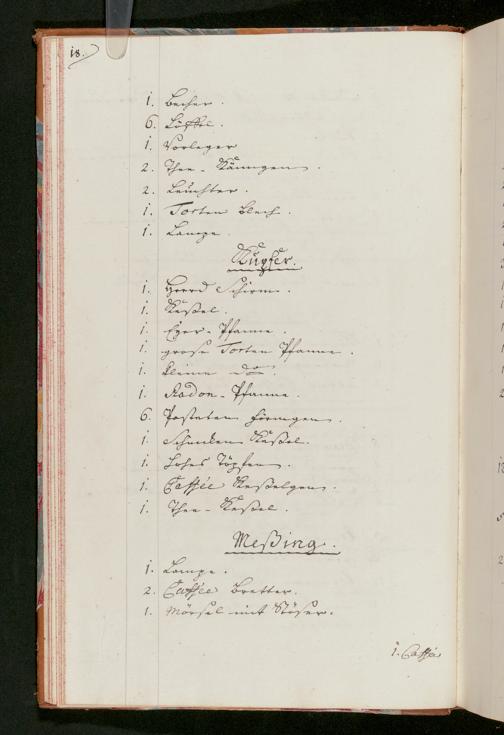 18.
1. Becher.
6. Löffel.
1. Vorleger
2. Thee-Känngen.
2. Leuchter.
1. Torten Blech.
1. Lampe.
Kupfer.
1. Heerd Schirm.
1. Keßel.
1. Eyer-Pfanne.
1. grose Torten Pfanne.
1. kleine do.
1. Radon-Pfanne.
6. Pasteten Förmgen.
1. Schinken Keßel.
1. Töpfen.
1. Caffée Keßelgen.
1. Thee-Keßel.
Meßing.
1. Lampe.
2. Caffée Bretter.
1. Mörsel mit Stöser.
1. Caffée